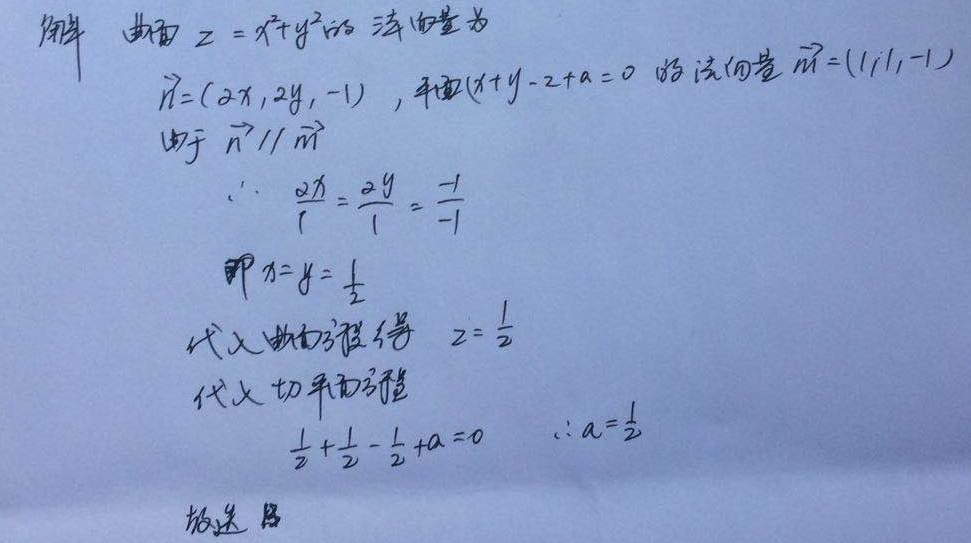 解 曲面 z = x²+y² 的 法向量为
n⃗=(2x, 2y, -1) , 平面(x+y-z+a=0 的法向量 m⃗=(1,1,-1)
由于 n⃗ // m⃗
∴ 2x/1 = 2y/1 = -1/-1
即 x=y=1/2
代入曲面方程得 z=1/2
代入切平面方程
1/2+1/2-1/2+a=0 ∴a=1/2
故选